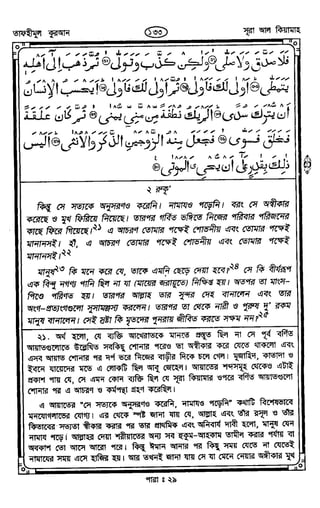 তাফহীমুল কুরআন
১৩৩
সূরা আল কিয়ামাহ
فَلَا صَدَّقَ وَلَا صَلّٰى ۞ وَلٰكِنْ كَذَّبَ وَتَوَلّٰى ۞ ثُمَّ ذَهَبَ اِلٰٓى اَهْلِهٖ
يَتَمَطّٰى ۞ اَوْلٰى لَكَ فَاَوْلٰى ۞ ثُمَّ اَوْلٰى لَكَ فَاَوْلٰى ۞ اَيَحْسَبُ الْاِنْسَانُ
اَنْ يُّتْرَكَ سُدًى ۞ اَلَمْ يَكُ نُطْفَةً مِّنْ مَّنِيٍّ يُّمْنٰى ۞ ثُمَّ كَانَ عَلَقَةً
فَخَلَقَ فَسَوّٰى ۞ فَجَعَلَ مِنْهُ الزَّوْجَيْنِ الذَّكَرَ وَالْاُنْثٰى ۞ اَلَيْسَ
ذٰلِكَ بِقٰدِرٍ عَلٰٓى اَنْ يُّحْيِۦَ الْمَوْتٰى ۞
২ রুকূ'
কিন্তু সে সত্যকে অনুসরণও করেনি। নামাযও পড়েনি। বরং সে অস্বীকার
করেছে ও মুখ ফিরিয়ে নিয়েছে। তারপর গর্বিত ভঙ্গিতে নিজের পরিবার পরিজনের
কাছে ফিরে গিয়েছে।২১ এ আচরণ তোমার পক্ষেই শোভনীয় এবং তোমার পক্ষেই
মানানসই। হাঁ, এ আচরণ তোমার পক্ষেই শোভনীয় এবং তোমার পক্ষেই
মানানসই।২২
মানুষ২৩ কি মনে করে যে, তাকে এমনি ছেড়ে দেয়া হবে?২৪ সে কি বীর্যরূপ
এক বিন্দু নগণ্য পানি ছিল না যা (মায়ের জরায়ুতে) নিক্ষিপ্ত হয়। অতপর তা মাংস-
পিণ্ডে পরিণত হয়। তারপর আল্লাহ তার সুন্দর দেহ বানালেন এবং তার
অংগ-প্রত্যংগগুলো সুসামঞ্জস্য করলেন। তারপর তা থেকে নারী ও পুরুষ দু' রকম
মানুষ বানালেন। সেই স্রষ্টা কি মৃতদের পুনরায় জীবিত করতে সক্ষম নন?২৫
২১. অর্থ হলো, যে ব্যক্তি আখেরাতকে মানতে প্রস্তুত ছিল না সে পূর্ব বর্ণিত
আয়াতগুলোতে উল্লেখিত সবকিছু শোনার পরেও তা অস্বীকার করে যেতে থাকলো এবং
এসব আয়াত শোনার পর দর্প ভরে নিজের বাড়ীর দিকে চলে গেল। মুজাহিদ, কাতাদা ও
ইবনে যায়েদের মতে এ লোকটি ছিল আবু জেহেল। আয়াতের শব্দসমূহ থেকেও এটাই
প্রকাশ পায় যে, সে এমন কোন ব্যক্তি ছিল যে সূরা কিয়ামাহর ওপরে বর্ণিত আয়াতগুলো
শোনার পর এ আচরণ ও কর্মপন্থা গ্রহণ করেছিল।
এ আয়াতের "সে সত্যকে অনুসরণও করেনি, নামাযও পড়েনি" কথাটি বিশেষভাবে
মনযোগলাভের যোগ্য। এর থেকে স্পষ্ট জানা যায় যে, আল্লাহ এবং তাঁর রসূল ও তাঁর
কিতাবের সত্যতা স্বীকার করার পর তার প্রাথমিক এবং অনিবার্য দাবী হলো, মানুষ যেন
নামায পড়ে। আল্লাহর দেয়া শরীয়াতের অন্য সব হুকুম-আহকাম তামীল করার পর্যায় বা
অবকাশ তো আসে আরো পরে। কিন্তু ঈমান আনার পর কিছু সময় যেতে না যেতেই
নামাযের সময় এসে হাজির হয়। আর তখনই জানা যায় সে যা মেনে নেয়ার অঙ্গীকার মুখ
পারা : ২৯